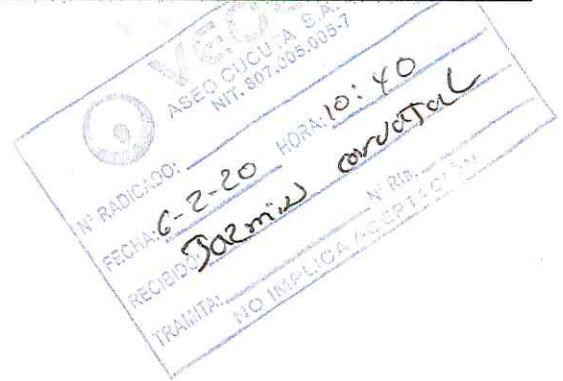 VEO
ASEO CUCUTA S.A.
NIT. 807.005.005-7
N° RADICADO:
FECHA: 6-2-20 HORA: 10:40
RECIBIDO: Jazmin carvajal
TRAMITA: N° RIB.
NO IMPLICA ACEPTACIÓN